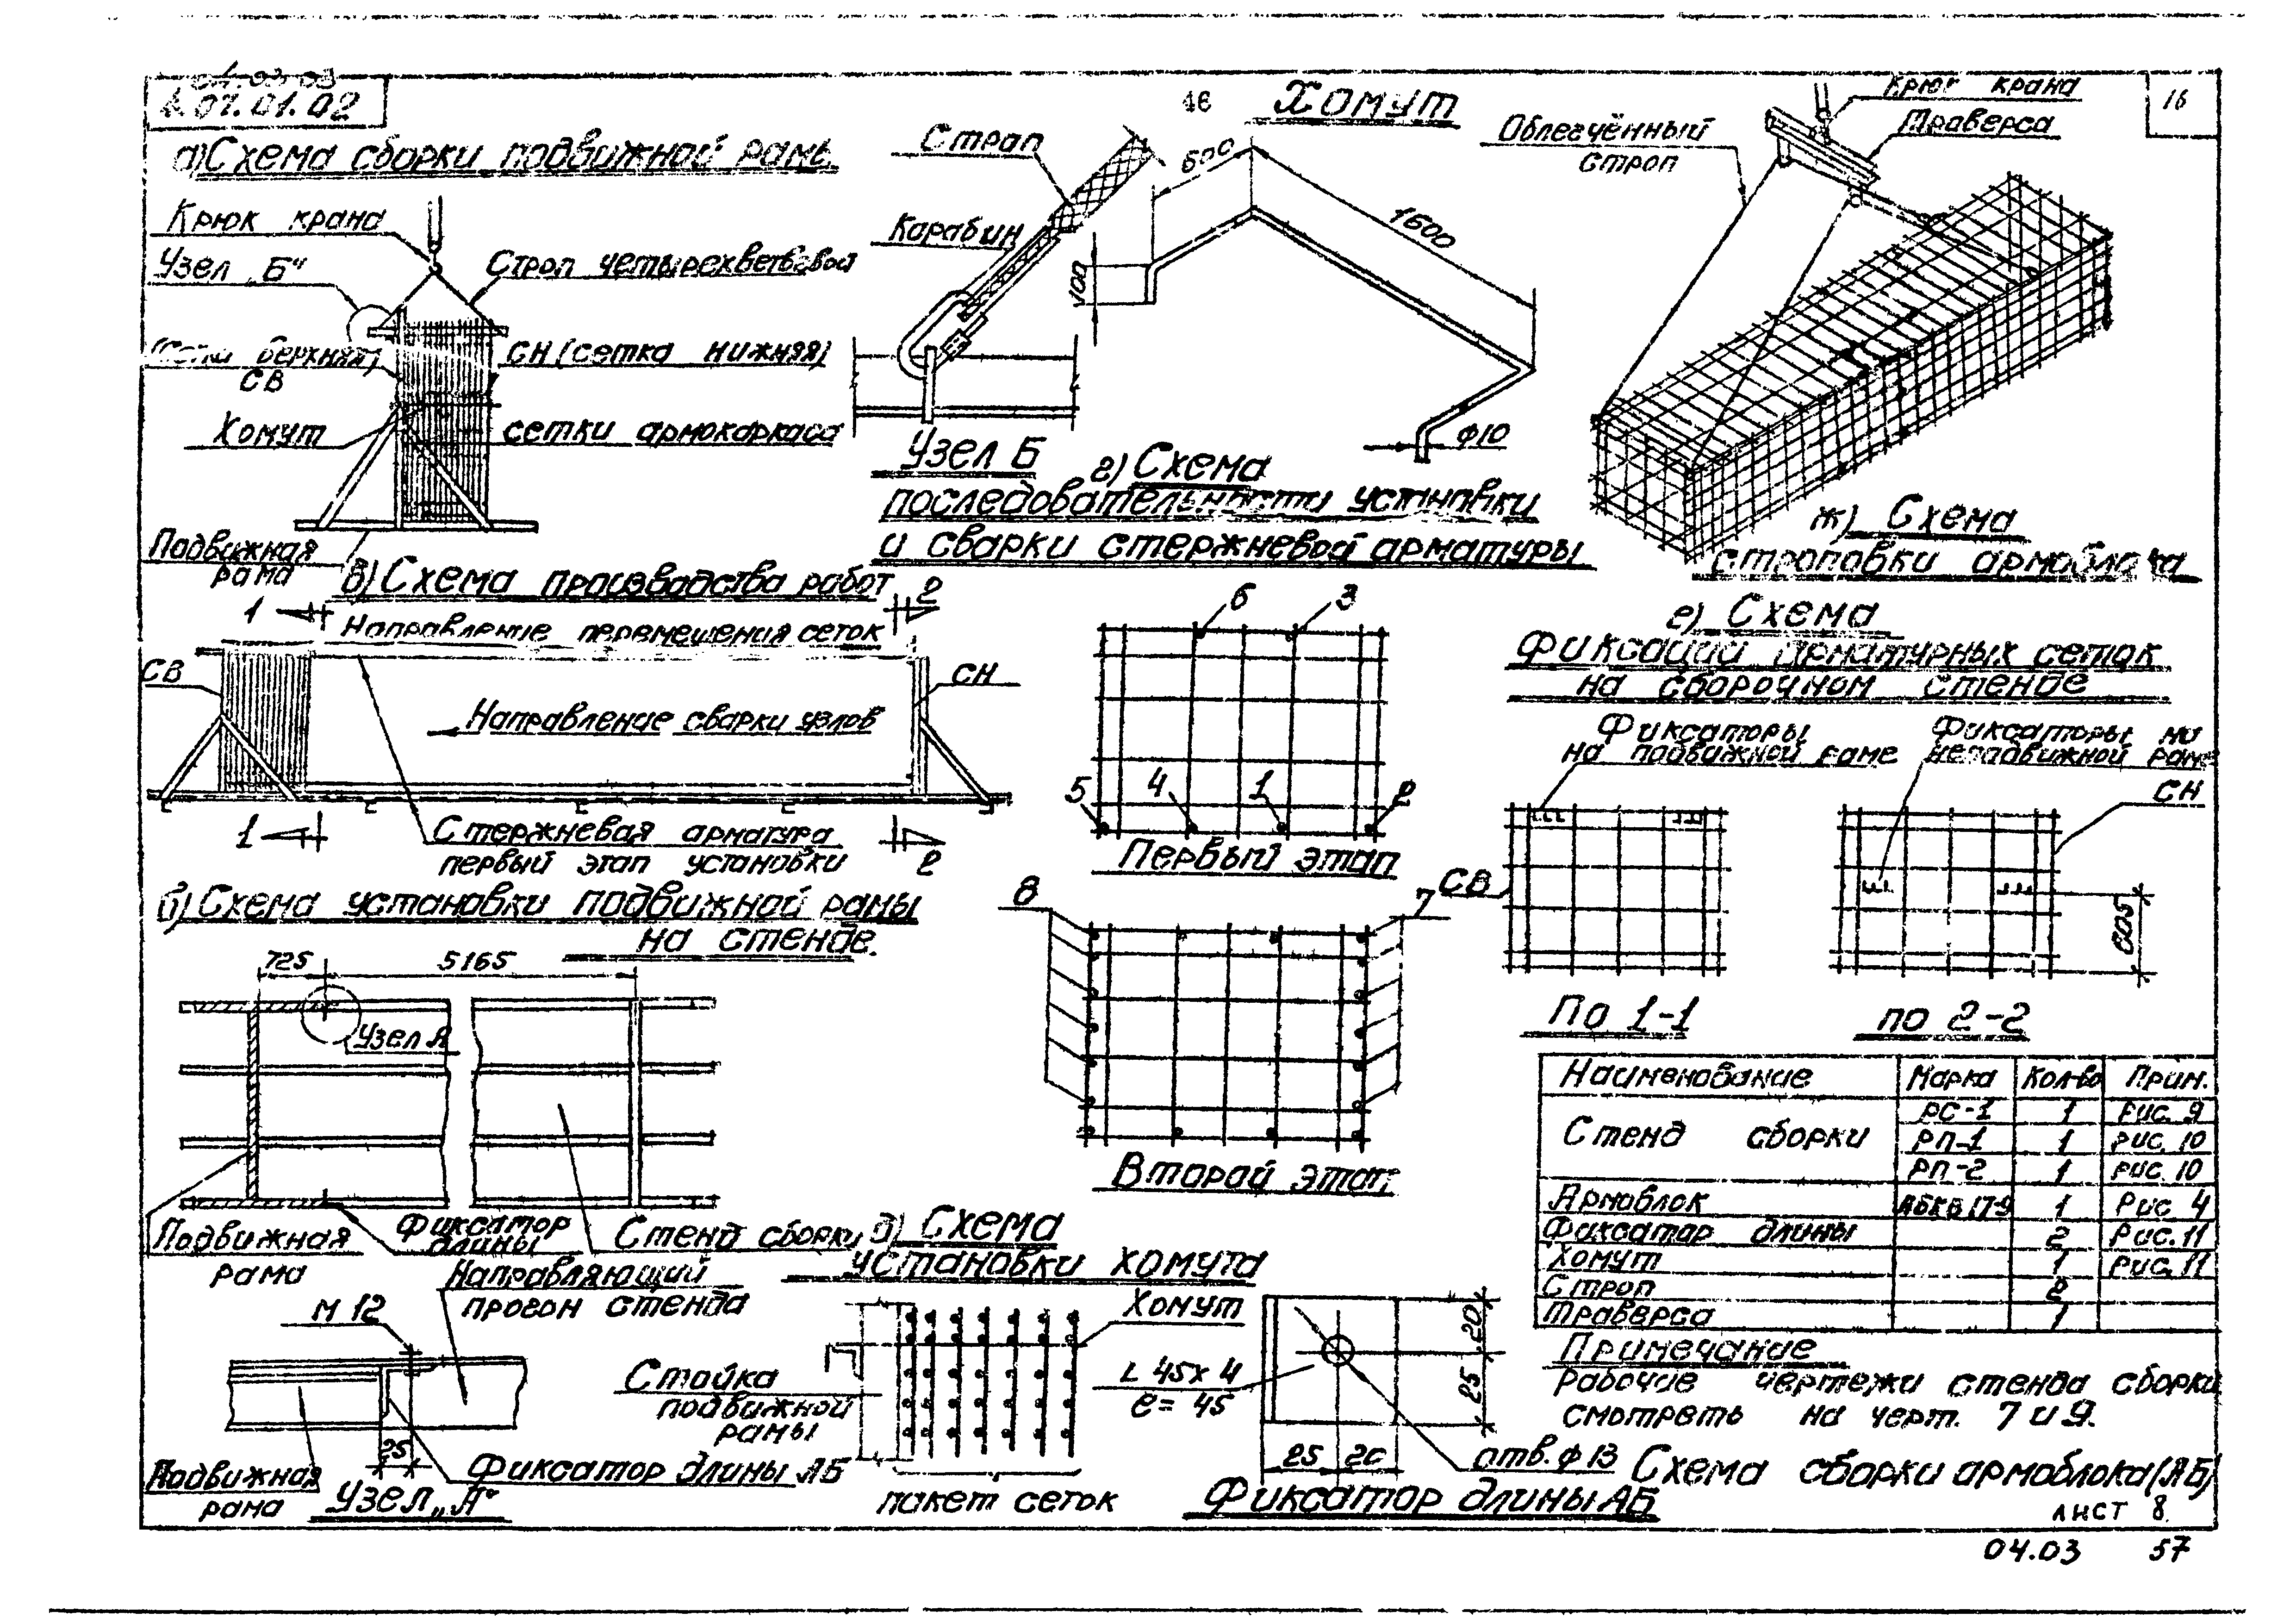 04.03 03
4.07.01.02
46
16
а) Схема сборки подвижной рамы
Крюк крана
Узел „Б"
Строп четырехветвевой
(Сетка верхняя)
СВ
СН (сетка нижняя)
Хомут
сетки армокаркаса
Подвижная
рама
Хомут
Строп
Карабин
600
1600
100
ф10
Узел Б
Крюк крана
Траверса
Облегчённый
строп
ж) Схема
строповки армоблока
г) Схема
последовательности установки
и сварки стержневой арматуры
6
3
5
4
1
2
Первый этап
8
7
Второй этап
в) Схема производства работ
1
2
Направление перемещения сеток
СВ
СН
Направление сварки узлов
1
2
Стержневая арматура
первый этап установки
б) Схема установки подвижной рамы
на стенде.
725
5165
Узел А
Подвижная
рама
Фиксатор
длины
Стенд сборки
Направляющий
прогон стенда
М 12
25
Подвижная
рама
Фиксатор длины АБ
Узел „А"
д) Схема
установки хомута
Хомут
Стойка
подвижной
рамы
пакет сеток
L 45х4
е = 45
20
25
25
20
отв. ф 13
Фиксатор длины АБ
е) Схема
фиксации арматурных сеток
на сборочном стенде
Фиксаторы
на подвижной раме
Фиксаторы на
неподвижной раме
СН
СВ
605
По 1-1
по 2-2
Наименование Марка Кол-во Прим.
Стенд сборки РС-1 1 Рис. 9
РП-1 1 рис. 10
РП-2 1 рис. 10
Армоблок АБКВ 17-9 1 Рис 4
Фиксатор длины 2 Рис. 11
Хомут 1 Рис. 11
Строп 2
Траверса 1
Примечание
Рабочие чертежи стенда сборки
смотреть на черт. 7 и 9.
Схема сборки армоблока (АБ)
лист 8
04.03 57